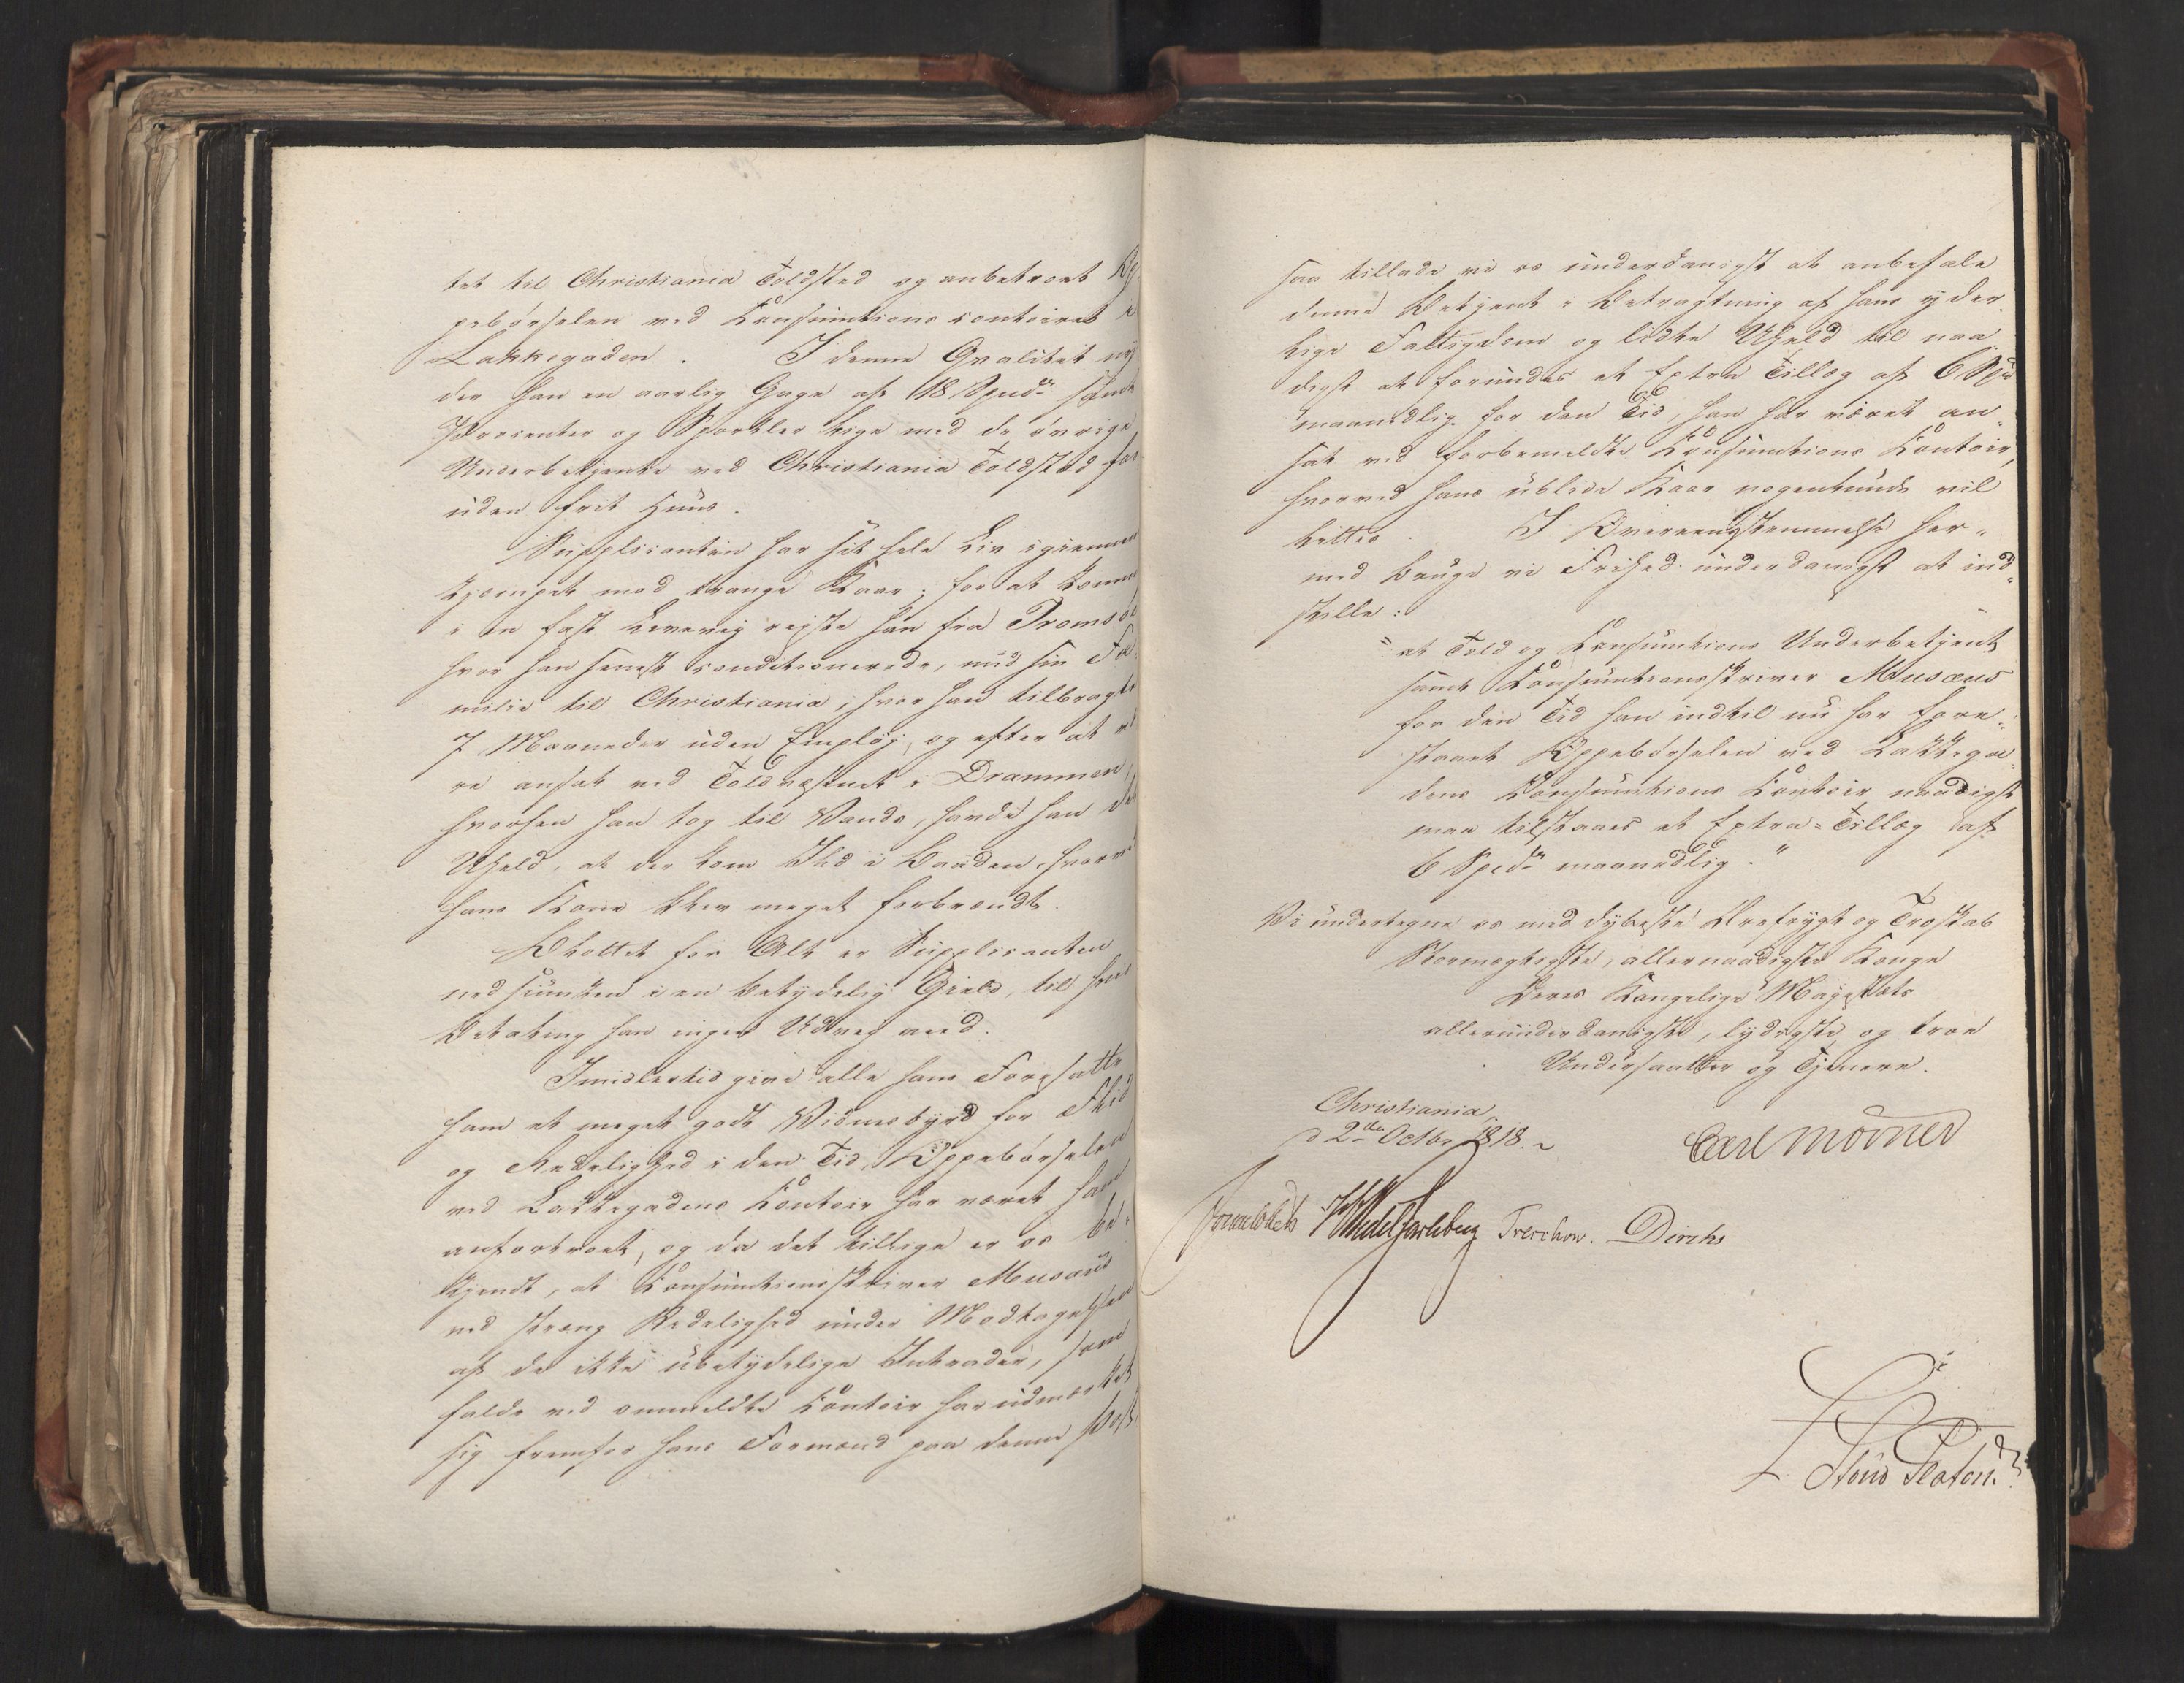 tet til Christiania Toldsted og anbetroet Op-
pebörselen ved Consumtions contoiret i
Lakkegaden. I denne Qvalitet ny-
der han en aarlig Gage af 18 Spd. samt
Procenter og Sportler lige med de øvrige
Underbetjente ved Christiania Toldsted for-
uden frit Huus.
Supplicanten har sit hele Liv igiennem
kjæmpet med trange Kaar; for at komme
i en fast Levevej reiste han fra Tromsöe
hvor han senest conditionerede, med sin Fa-
milie til Christiania, hvor han tilbragte
7 Maaneder uden Emploj, og efter at væ-
re ansat ved Toldvæsenet i Drammen,
hvorhen han tog til Vands, havde han det
Uheld, at der kom Ild i Baaden, hvorved
hans Kone blev meget forbrændt.
Blottet for Alt er Supplicanten
nedsunken i en betydelig Gield, til hvis
Betaling han ingen Udvej veed.
Imidlertid give alle hans Foresatte
ham et meget godt Vidnesbyrd for Flid
og Redelighed i den Tid, Oppebörselen
ved Lakkegadens Contoir har været ham
anfortroet, og da det tillige er os be-
kjendt, at Consumtionsskriver Musæus
ved streng Redelighed under Modtagelsen
af de ikke ubetydelige Intrader, som
falde ved ommeldte Contoir har udmærket
sig fremfor hans Formænd paa denne Post,
saa tillade vi os underdanigst at anbefale
denne Betjent i Betragtning af hans yder-
lige Fattigdom og lidte Uheld til naa-
digst at forundes et Extra Tillæg af 6 Spd
maanedlig for den Tid, han har været an-
sat ved forbemeldte Consumtions Contoir,
hvorved hans usle Kaar nogenlunde vil
lettes. I Overeensstemmelse her-
med bruge vi Frihed underdanigst at ind-
stille:
"at Told og Consumtions Underbetjent
samt Consumtionsskriver Musæus
for den Tid han indtil nu har fore-
staaet Oppebörselen ved Lakkega-
dens Consumtions Contoir naadigst
maa tilstaaes et Extra-Tillæg af
6 Spd. maanedlig."
Vi undertegne os med dybeste Ærefrygt og Troskab
Stormægtigste, allernaadigste Konge
Deres Kongelige Majestæts
allerunderdanigste, lydigste og troe
Undersaatter og Tjenere.
Christiania
d 2den Octbr 1818.
Carl Mörner
Sommelhielm HWedel Jarlsberg Treschow. Diriks
L. Stoud Platou.